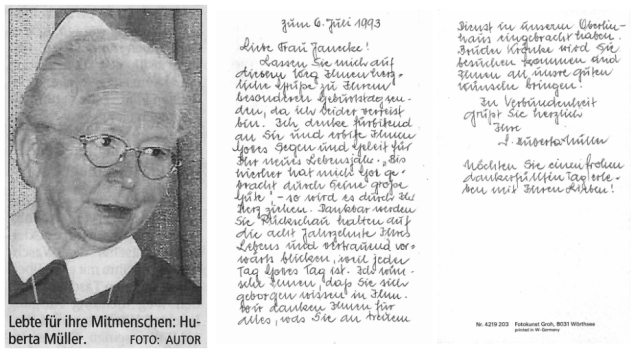 Lebte für ihre Mitmenschen: Hu-
berta Müller. FOTO: AUTOR
zum 6. Juli 1993
Liebe Frau Janecke!
Lassen Sie mich auf
diesem Weg Ihnen herz-
liche Grüße zu Ihrem
besonderen Geburtstag sen-
den, da ich leider verreist
bin. Ich denke fürbittend
an Sie und erbitte Ihnen
Gottes Segen und Geleit für
Ihr neues Lebensjahr. „Bis
hierher hat mich Gott ge-
bracht durch seine große
Güte" - so wird es durch Ihr
Herz ziehen. Dankbar werden
Sie Rückschau halten auf
die acht Jahrzehnte Ihres
Lebens und vertrauend vor-
wärts blicken, weil jeder
Tag Gottes Tag ist. Ich wün-
sche Ihnen, daß Sie sich
geborgen wissen in Ihm.
Wir danken Ihnen für
alles, was Sie an treuem
Dienst in unserem Oberlin-
haus eingebracht haben.
Bruder wird Sie
besuchen kommen und
Ihnen all unsre guten
Wünsche bringen.
In Verbundenheit
grüßt Sie herzlich
Ihre
S. Huberta Müller
Möchten Sie einen frohen
dankerfüllten Tag erle-
ben mit Ihren Lieben!
Nr. 4219 203 Fotokunst Groh, 8031 Wörthsee
printed in W.-Germany